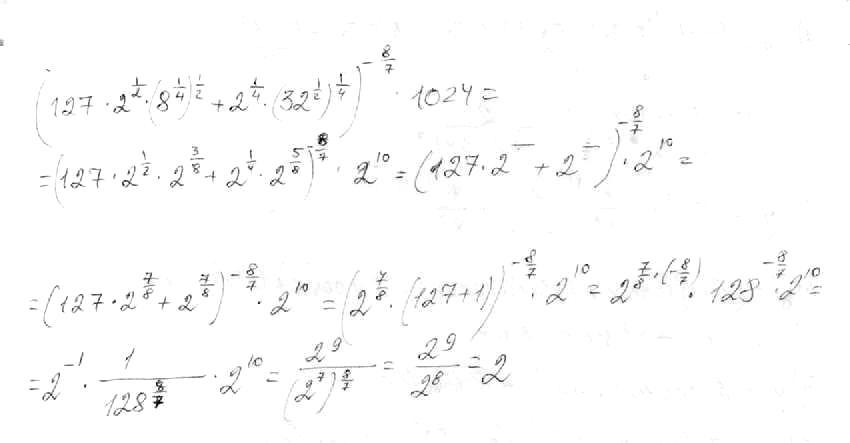 (127 · 2^{1/2} · (8^{1/4})^{1/2} + 2^{1/4} · (32^{1/2})^{1/4})^{-8/7} · 1024 =
= (127 · 2^{1/2} · 2^{3/8} + 2^{1/4} · 2^{5/8})^{-8/7} · 2^{10} = (127 · 2^{—} + 2^{—})^{-8/7} · 2^{10} =
= (127 · 2^{7/8} + 2^{7/8})^{-8/7} · 2^{10} = (2^{7/8} · (127+1))^{-8/7} · 2^{10} = 2^{7/8 · (-8/7)} · 128^{-8/7} · 2^{10} =
= 2^{-1} · \frac{1}{128^{8/7}} · 2^{10} = \frac{2^9}{(2^7)^{8/7}} = \frac{2^9}{2^8} = 2